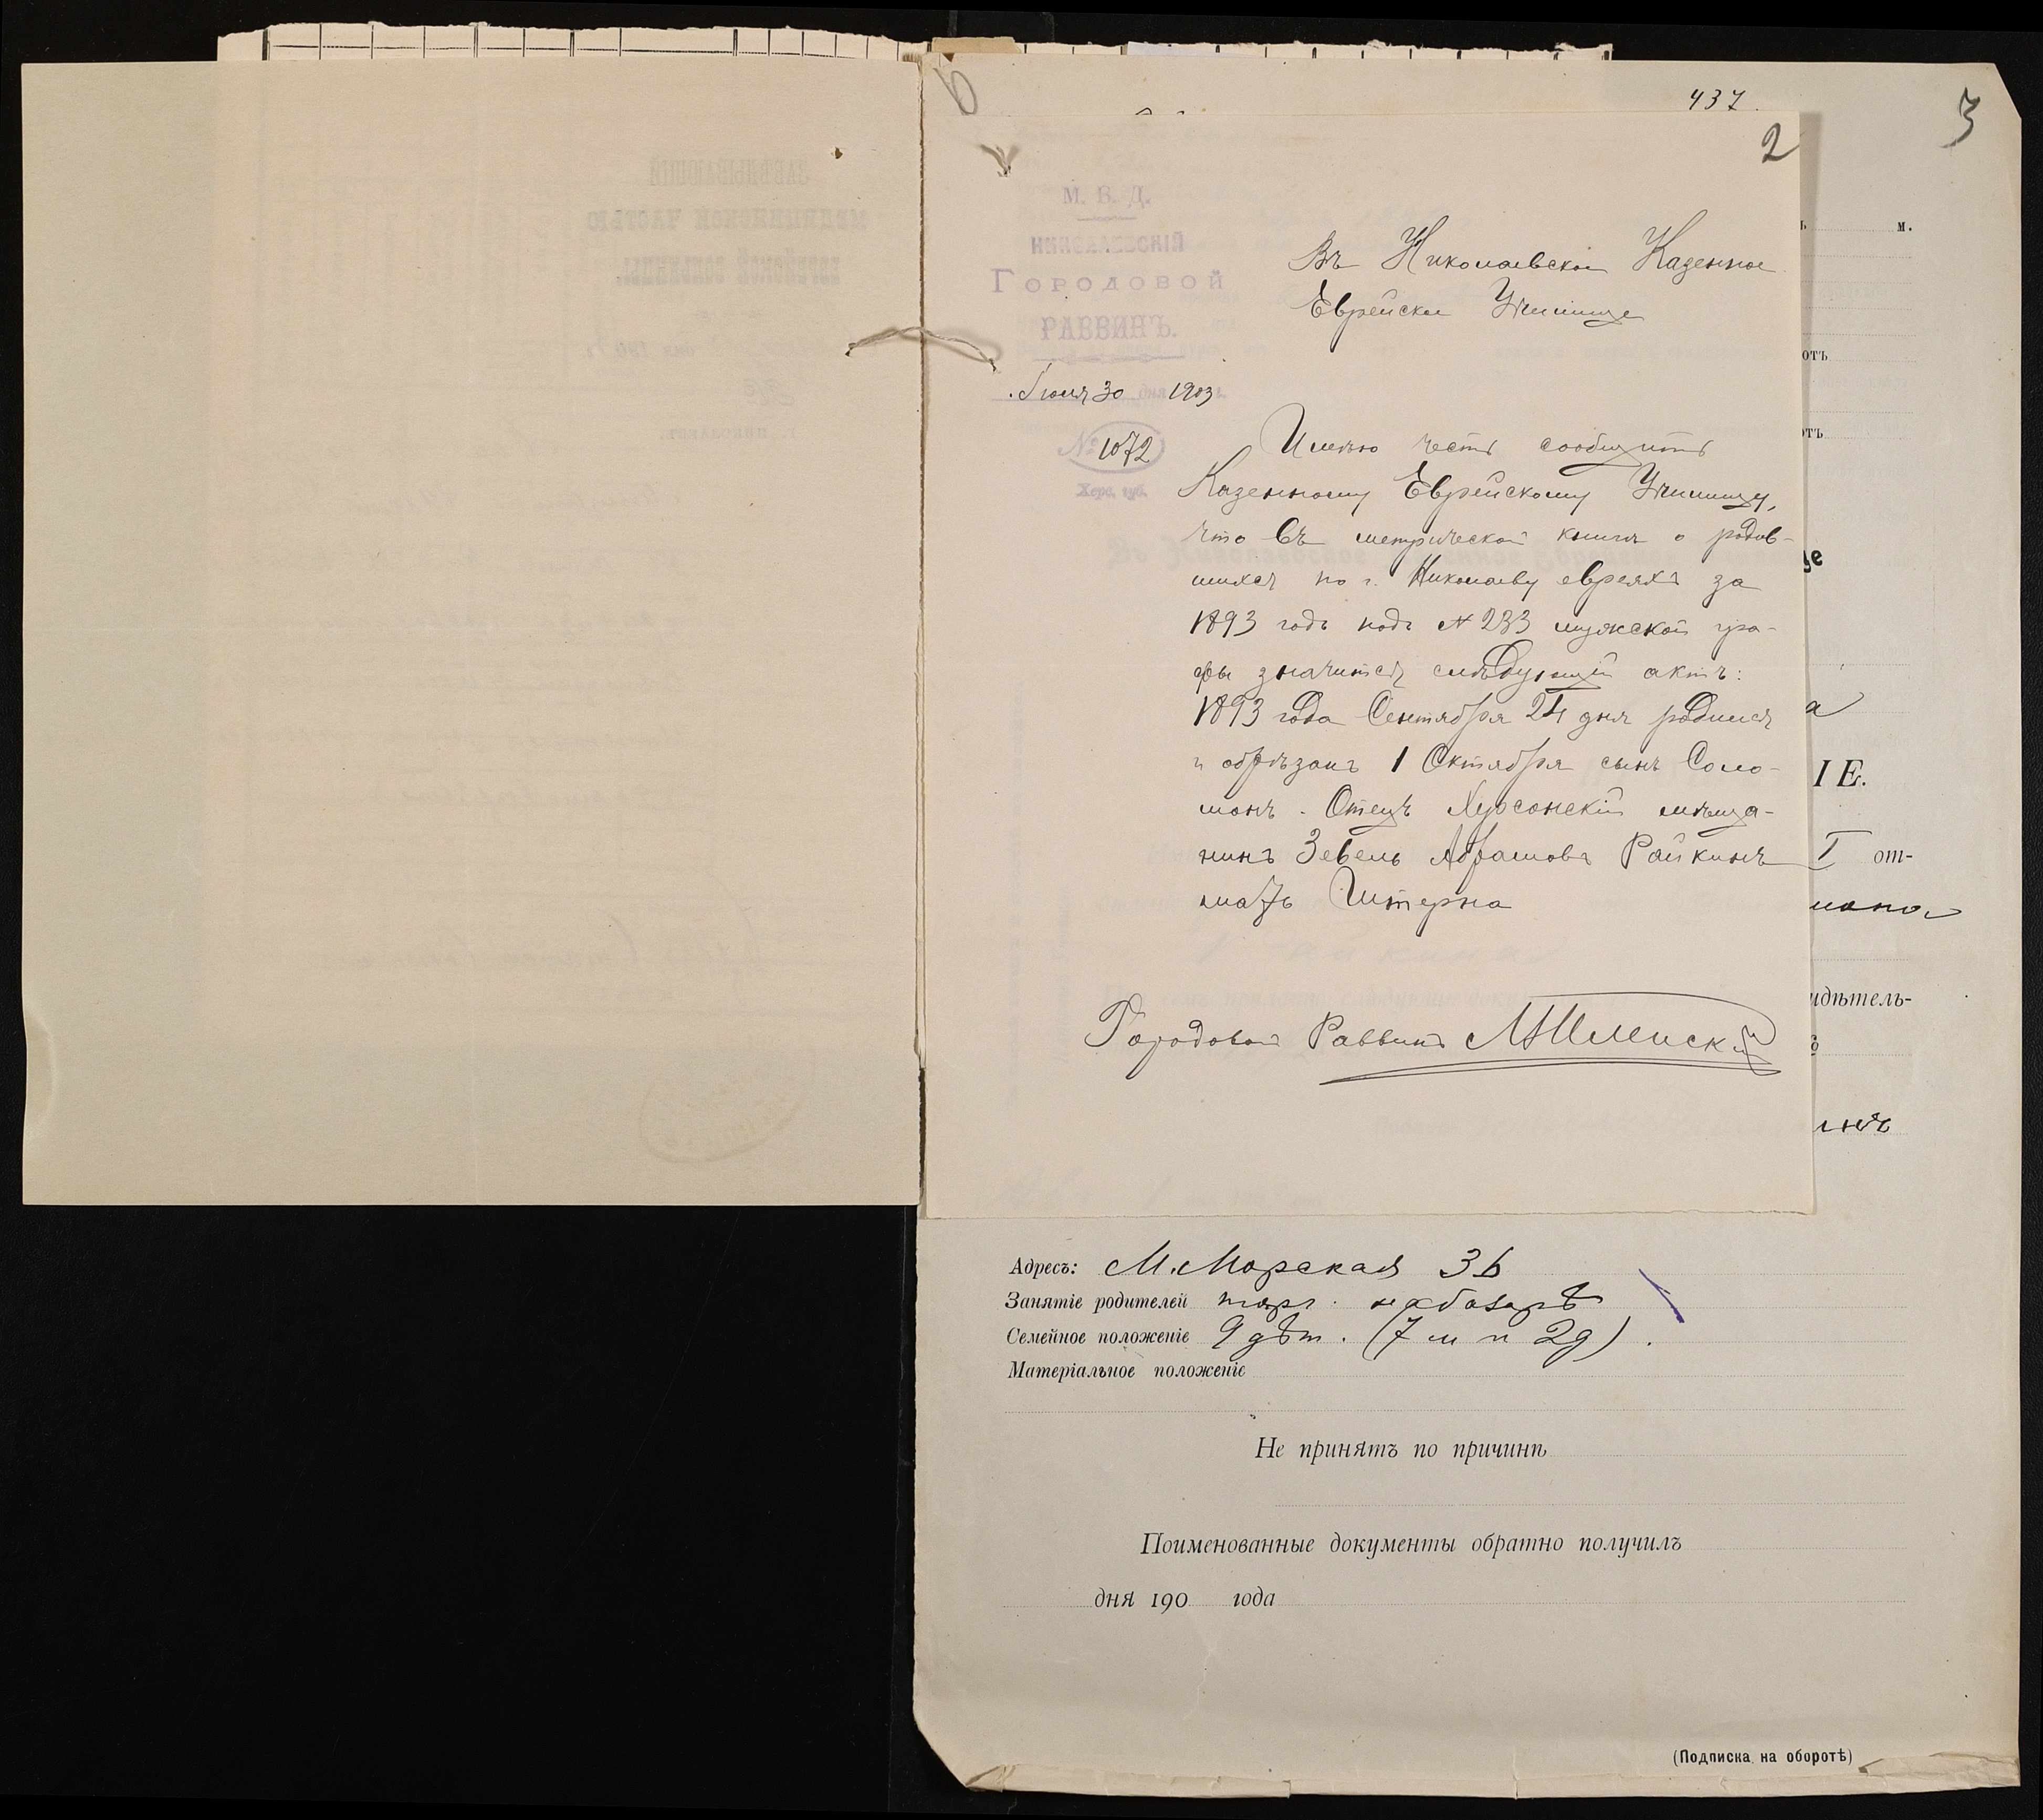 437
3
2
М. В. Д.
НИКОЛАЕВСКІЙ
ГОРОДОВОЙ
РАВВИНЪ.
Іюля 30 дня 1903 г.
№ 1072
Херс. губ.
Въ Николаевское Казенное
Еврейское Училище
Имѣю честь сообщить
Казенному Еврейскому Училищу,
что въ метрической книгѣ о родив-
шихся по г. Николаеву евреяхъ за
1893 годъ подъ № 233 мужской гра-
фы значится слѣдующій актъ:
1893 года Сентября 24 дня родился
и обрѣзанъ 1 Октября сынъ Соло-
монъ. Отецъ Херсонскій мѣща-
нинъ Зевель Абрамовъ Райкинъ
мать Штерна
Городовой Раввинъ
м.
отъ
отъ
ще
а
ІЕ.
I от-
мона
идѣтель-
инъ
Адресъ: М. Морская 36
Занятіе родителей торг. на базарѣ
Семейное положеніе 9 дѣт. (7 м и 2д).
Матеріальное положеніе
Не принятъ по причинѣ
Поименованные документы обратно получилъ
дня 190 года
(Подписка на оборотѣ)
ЗАВѢДЫВАЮЩІЙ
МЕДИЦИНСКОЙ ЧАСТЬЮ
ЕВРЕЙСКОЙ БОЛЬНИЦЫ.
Г. НИКОЛАЕВЪ.